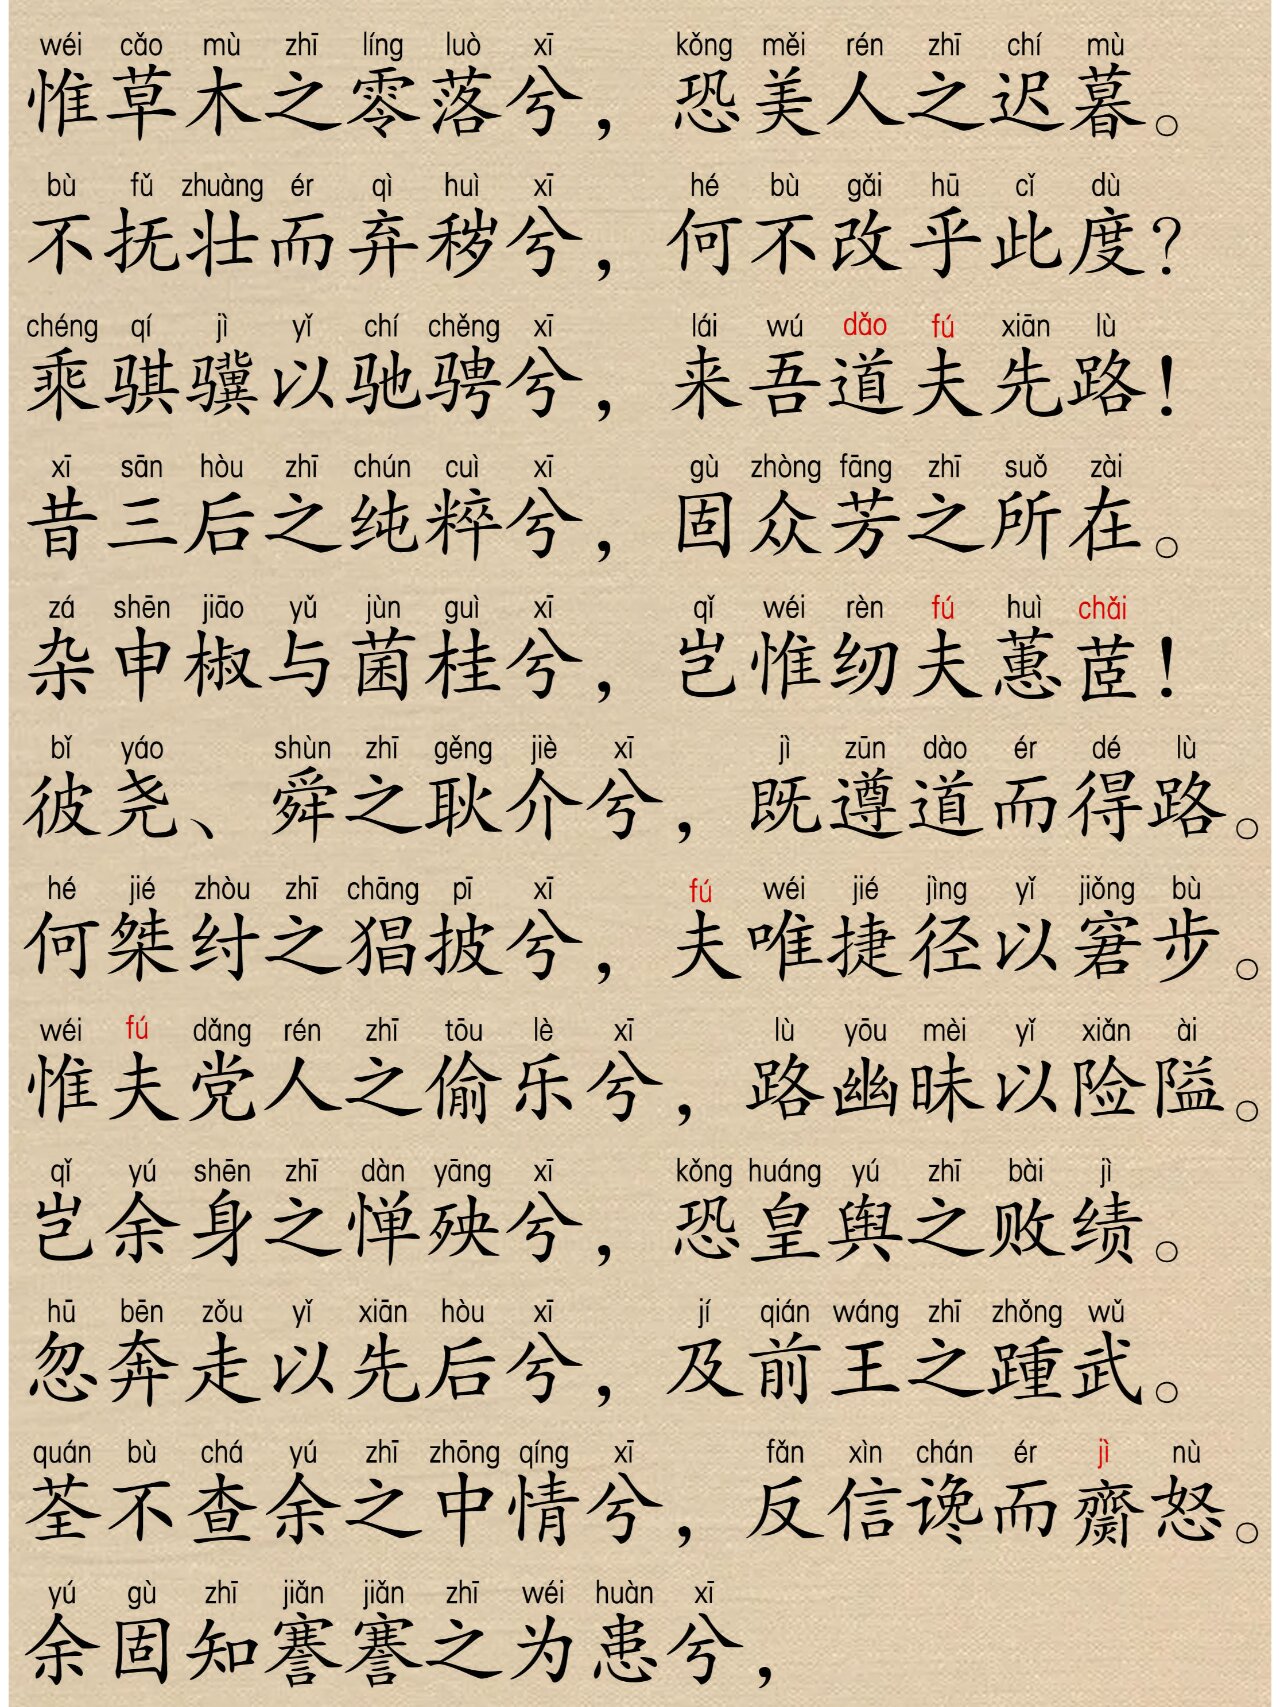 wéi cǎo mù zhī líng luò xī kǒng měi rén zhī chí mù
惟草木之零落兮，恐美人之迟暮。
bù fǔ zhuàng ér qì huì xī hé bù gǎi hū cǐ dù
不抚壮而弃秽兮，何不改乎此度？
chéng qí jì yǐ chí chěng xī lái wú dǎo fú xiān lù
乘骐骥以驰骋兮，来吾道夫先路！
xī sān hòu zhī chún cuì xī gù zhòng fāng zhī suǒ zài
昔三后之纯粹兮，固众芳之所在。
zá shēn jiāo yǔ jùn guì xī qǐ wéi rèn fú huì chǎi
杂申椒与菌桂兮，岂惟纫夫蕙茝！
bǐ yáo shùn zhī gěng jiè xī jì zūn dào ér dé lù
彼尧、舜之耿介兮，既遵道而得路。
hé jié zhòu zhī chāng pī xī fú wéi jié jìng yǐ jiǒng bù
何桀纣之猖披兮，夫唯捷径以窘步。
wéi fú dǎng rén zhī tōu lè xī lù yōu mèi yǐ xiǎn ài
惟夫党人之偷乐兮，路幽昧以险隘。
qǐ yú shēn zhī dàn yāng xī kǒng huáng yú zhī bài jì
岂余身之惮殃兮，恐皇舆之败绩。
hū bēn zǒu yǐ xiān hòu xī jí qián wáng zhī zhǒng wǔ
忽奔走以先后兮，及前王之踵武。
quán bù chá yú zhī zhōng qíng xī fǎn xìn chán ér jì nù
荃不查余之中情兮，反信谗而齌怒。
yú gù zhī jiǎn jiǎn zhī wéi huàn xī
余固知謇謇之为患兮，